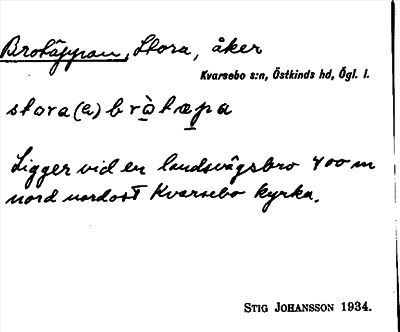 Brotäppan, Stora, åker
Kvarsebo s:n, Östkinds hd, Ögl. l.
stora(e) bròtæpa
Ligger vid en landsvägsbro 400 m
nord nordost Kvarsebo kyrka.
STIG JOHANSSON 1934.